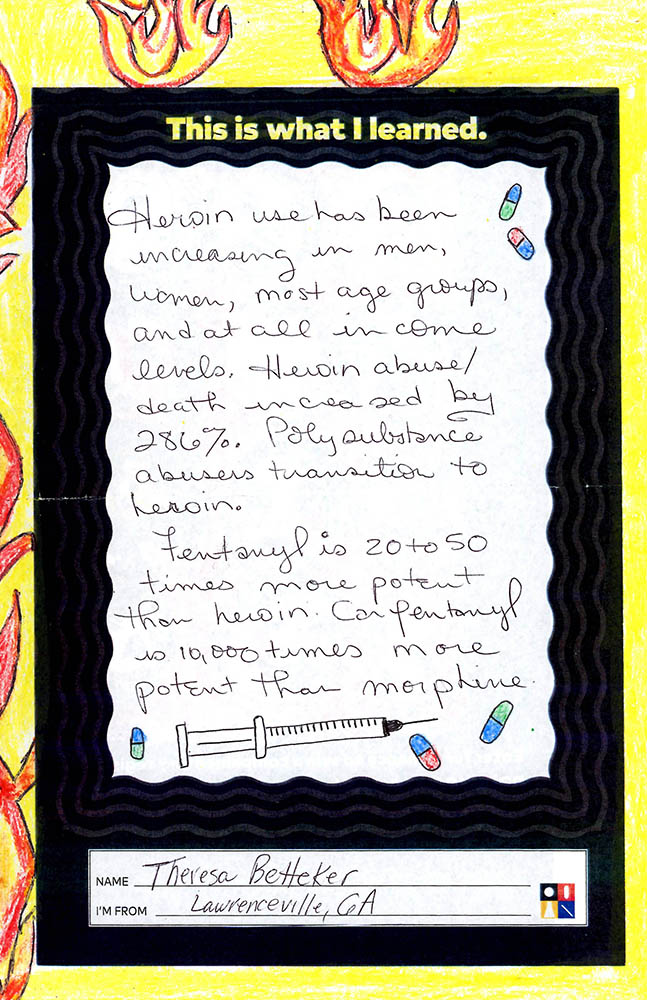 This is what I learned.
Heroin use has been
increasing in men,
women, most age groups,
and at all income
levels. Heroin abuse/
death increased by
286%. Polysubstance
abusers transition to
heroin.
Fentanyl is 20 to 50
times more potent
than heroin. Carfentanyl
is 10,000 times more
potent than morphine.
NAME Theresa Betteker
I'M FROM Lawrenceville, GA